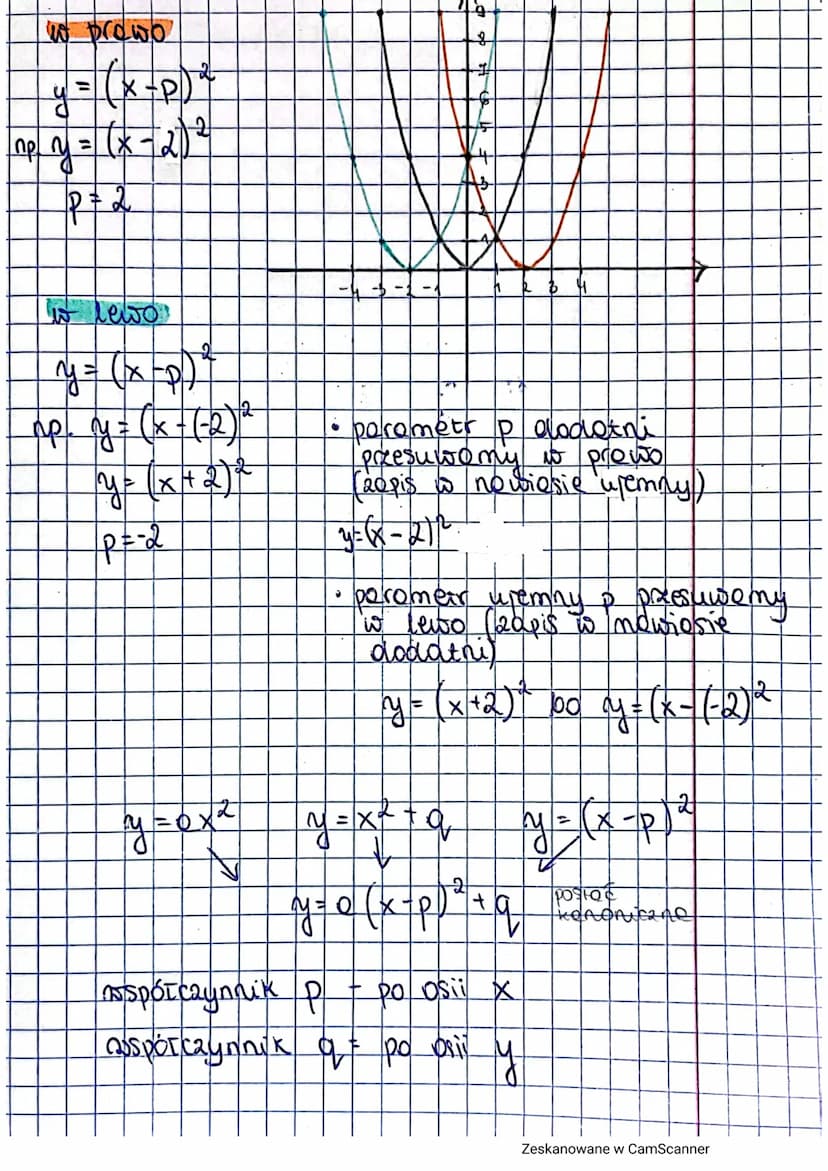 w prawo
y = (x-p)²
np. y = (x-2)²
p = 2
9
8
7
6
5
4
3
2
1
-4 -3 -2 -1 1 2 3 4
w lewo
y = (x-p)²
np. y = (x-(-2)²
y = (x+2)²
p = -2
• parametr p dodatni
przesuwamy w prawo
(zapis w nawiasie ujemny)
y=(x-2)²
• parametr ujemny p przesuwamy
w lewo (zapis w nawiasie
dodatni)
y = (x+2)² bo y=(x-(-2)²
y = ax² y = x² + q y = (x-p)²
y = a(x-p)² + q postać
kanoniczna
współczynnik p - po osii x
współczynnik q = po osii y
Zeskanowane w CamScanner